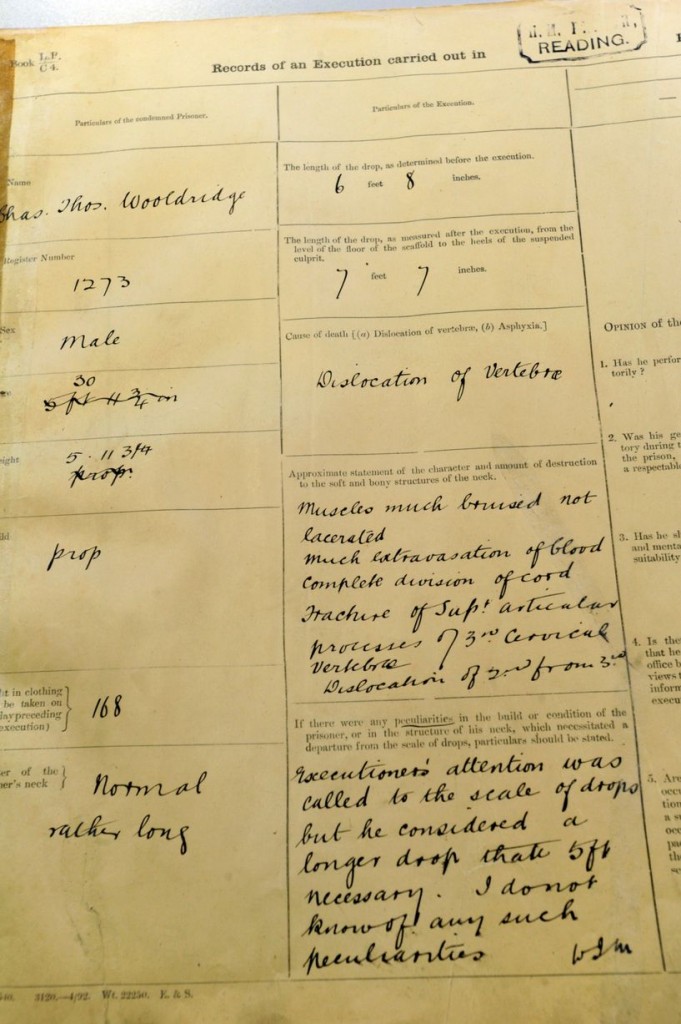 Book L.P.
C 4.
Records of an Execution carried out in
READING.
Particulars of the condemned Prisoner.
Name
Chas. Thos. Wooldridge
Register Number
1273
Sex
Male
30
5 ft 11 3/4 in
5 . 11 3/4
prop.
prop
168
t in clothing
be taken on
day preceding
execution)
er of the
er's neck
Normal
rather long
3120.—4/92. Wt. 22250. E. & S.
Particulars of the Execution.
The length of the drop, as determined before the execution.
6 feet 8 inches.
The length of the drop, as measured after the execution, from the
level of the floor of the scaffold to the heels of the suspended
culprit.
7 feet 7 inches.
Cause of death [(a) Dislocation of vertebræ, (b) Asphyxia.]
Dislocation of Vertebræ
Approximate statement of the character and amount of destruction
to the soft and bony structures of the neck.
Muscles much bruised not
lacerated
Much extravasation of blood
complete division of cord
Fracture of Supr. articular
processes of 3rd Cervical
Vertebræ
Dislocation of 2nd from 3rd
If there were any peculiarities in the build or condition of the
prisoner, or in the structure of his neck, which necessitated a
departure from the scale of drops, particulars should be stated.
Executioner's attention was
called to the scale of drops
but he considered a
longer drop than 5ft
necessary. I do not
know of any such
peculiarities
OPINION of the
1. Has he perfor
torily ?
2. Was his ge
tory during t
the prison,
a respectabl
3. Has he sh
and menta
suitability
4. Is the
that he
office b
views t
inform
execu
5. Are
occu
tion
a s
occ
pa
the